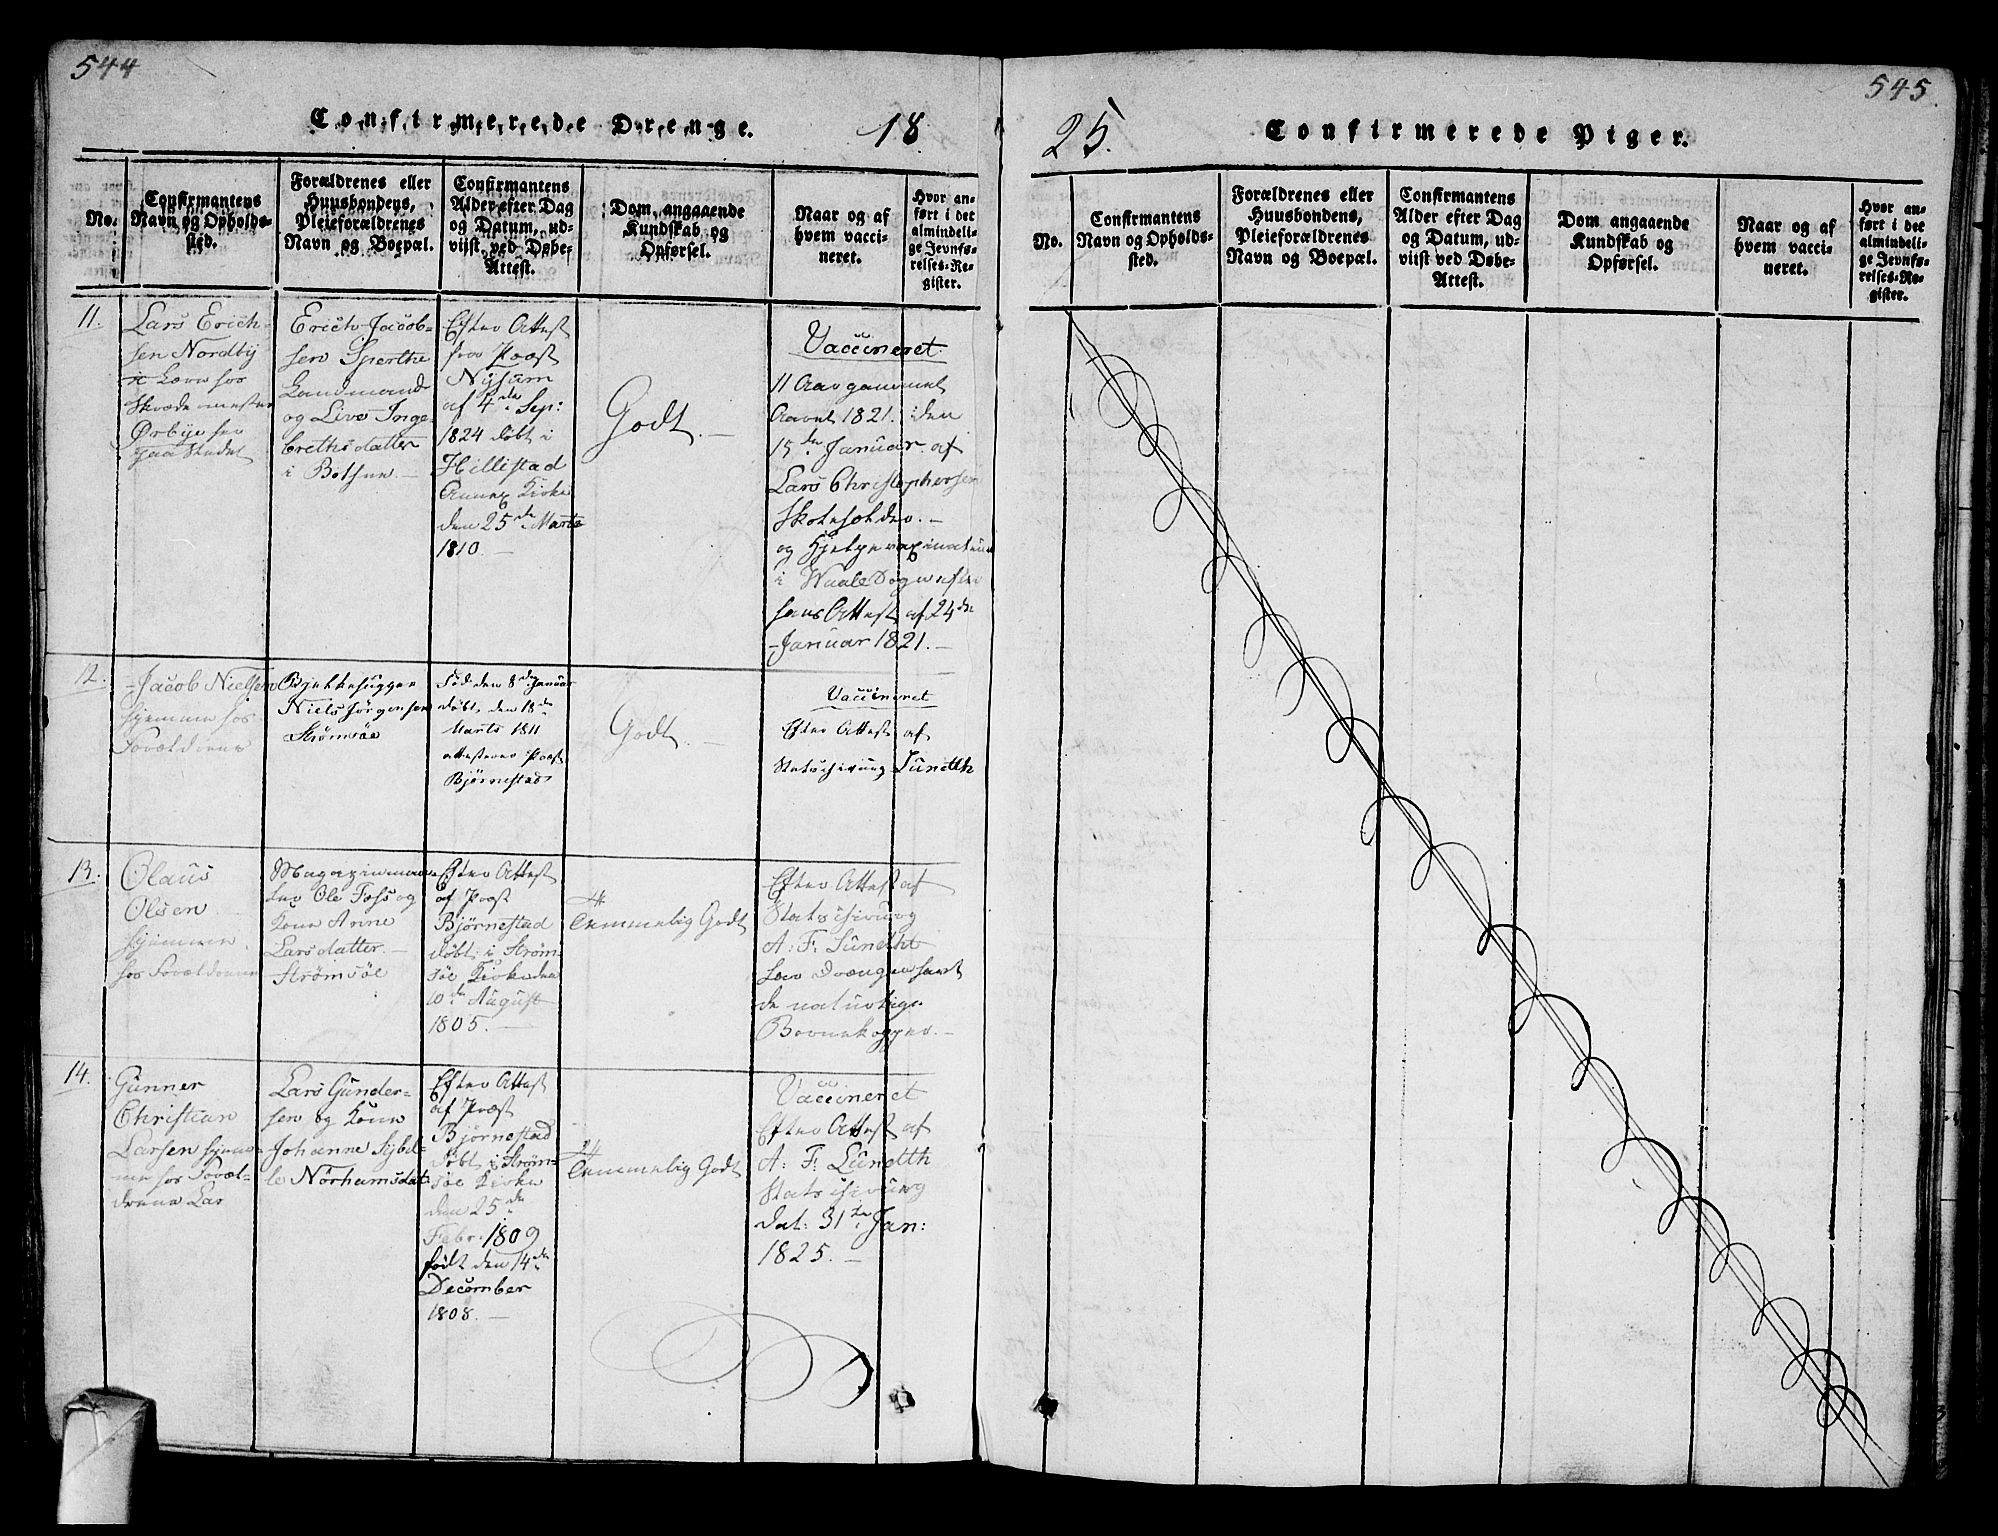 544
Confirmerede Drenge.
18
No.
Confirmantens
Navn og Opholds-
sted.
Forældrenes eller
Huusbondens,
Pleieforældrenes
Navn og Boepæl.
Confirmantens
Alder efter Dag
og Datum, ud-
viist ved Døbe-
Attest.
Dom, angaaende
Kundskab og
Opførsel.
Naar og af
hvem vacci-
neret.
Hvor an-
ført i det
almindeli-
ge Jevnfø-
relses-Re-
gister.
11.
Lars Erich-
sen Nordby
Ørbye
Erich Jacob-
sen
Landmand
og Live Inge-
brethsdatter
i
Efter Attest
fra Præst
Nysum
af 4de Sep:
1824 døbt i
Hillestad
Annex Kirke
den 25de Marts
1810.
Godt.
Vaccineret.
11 Aar gammel
Aaret 1821. den
15de Januar af
Lars Christophersen
og Hjelpevaxinateur
i
hans Attest af 24de
Januar 1821.
12.
Jacob Nielsen
hjemme hos
Forældrene
Niels Jørgensen
Strømsøe
Fød den 8de Januar
døbt den 18de
Marts 1811
attesterer Præst
Bjørnestad
Godt.
Vaccineret
Efter Attest af
Statschirurg Lundtth
13.
Olaus
Olsen
hjemme
hos Forældrene
Ole Foss og
Kone Arine
Larsdatter.
Strømsøe
Efter Attest
af Præst
Bjørnestad
døbt i Strøm-
søe Kirke den
10de August
1805.
Temmelig Godt
Efter Attest af
Statschirurg
A: F: Lundtht
har Drengen havt
de naturlige
Børnekopper.
14.
Gunner
Christian
Larsen hjem-
me hos Foræl-
drene Lar
Lars Gunder-
sen og Kone
Johanne Sybil-
le Norhamsdat:
Efter Attest
af Præst
Bjørnestad
døbt i Strøm-
søe Kirke
den 25de
Febr. 1809
født den 14de
December
1808.
Temmelig Godt
Vaccineret
Efter Attest af
A: F: Lundtth
Statschirurg
dat: 31te Jan:
1825.
545.
25.
Confirmerede Piger.
No.
Confirmantens
Navn og Opholds-
sted.
Forældrenes eller
Huusbondens,
Pleieforældrenes
Navn og Boepæl.
Confirmantens
Alder efter Dag
og Datum, ud-
viist ved Døbe-
Attest.
Dom angaaende
Kundskab og
Opførsel.
Naar og af
hvem vacci-
neret.
Hvor an-
ført i det
almindeli-
ge Jevnfø-
relses-Re-
gister.